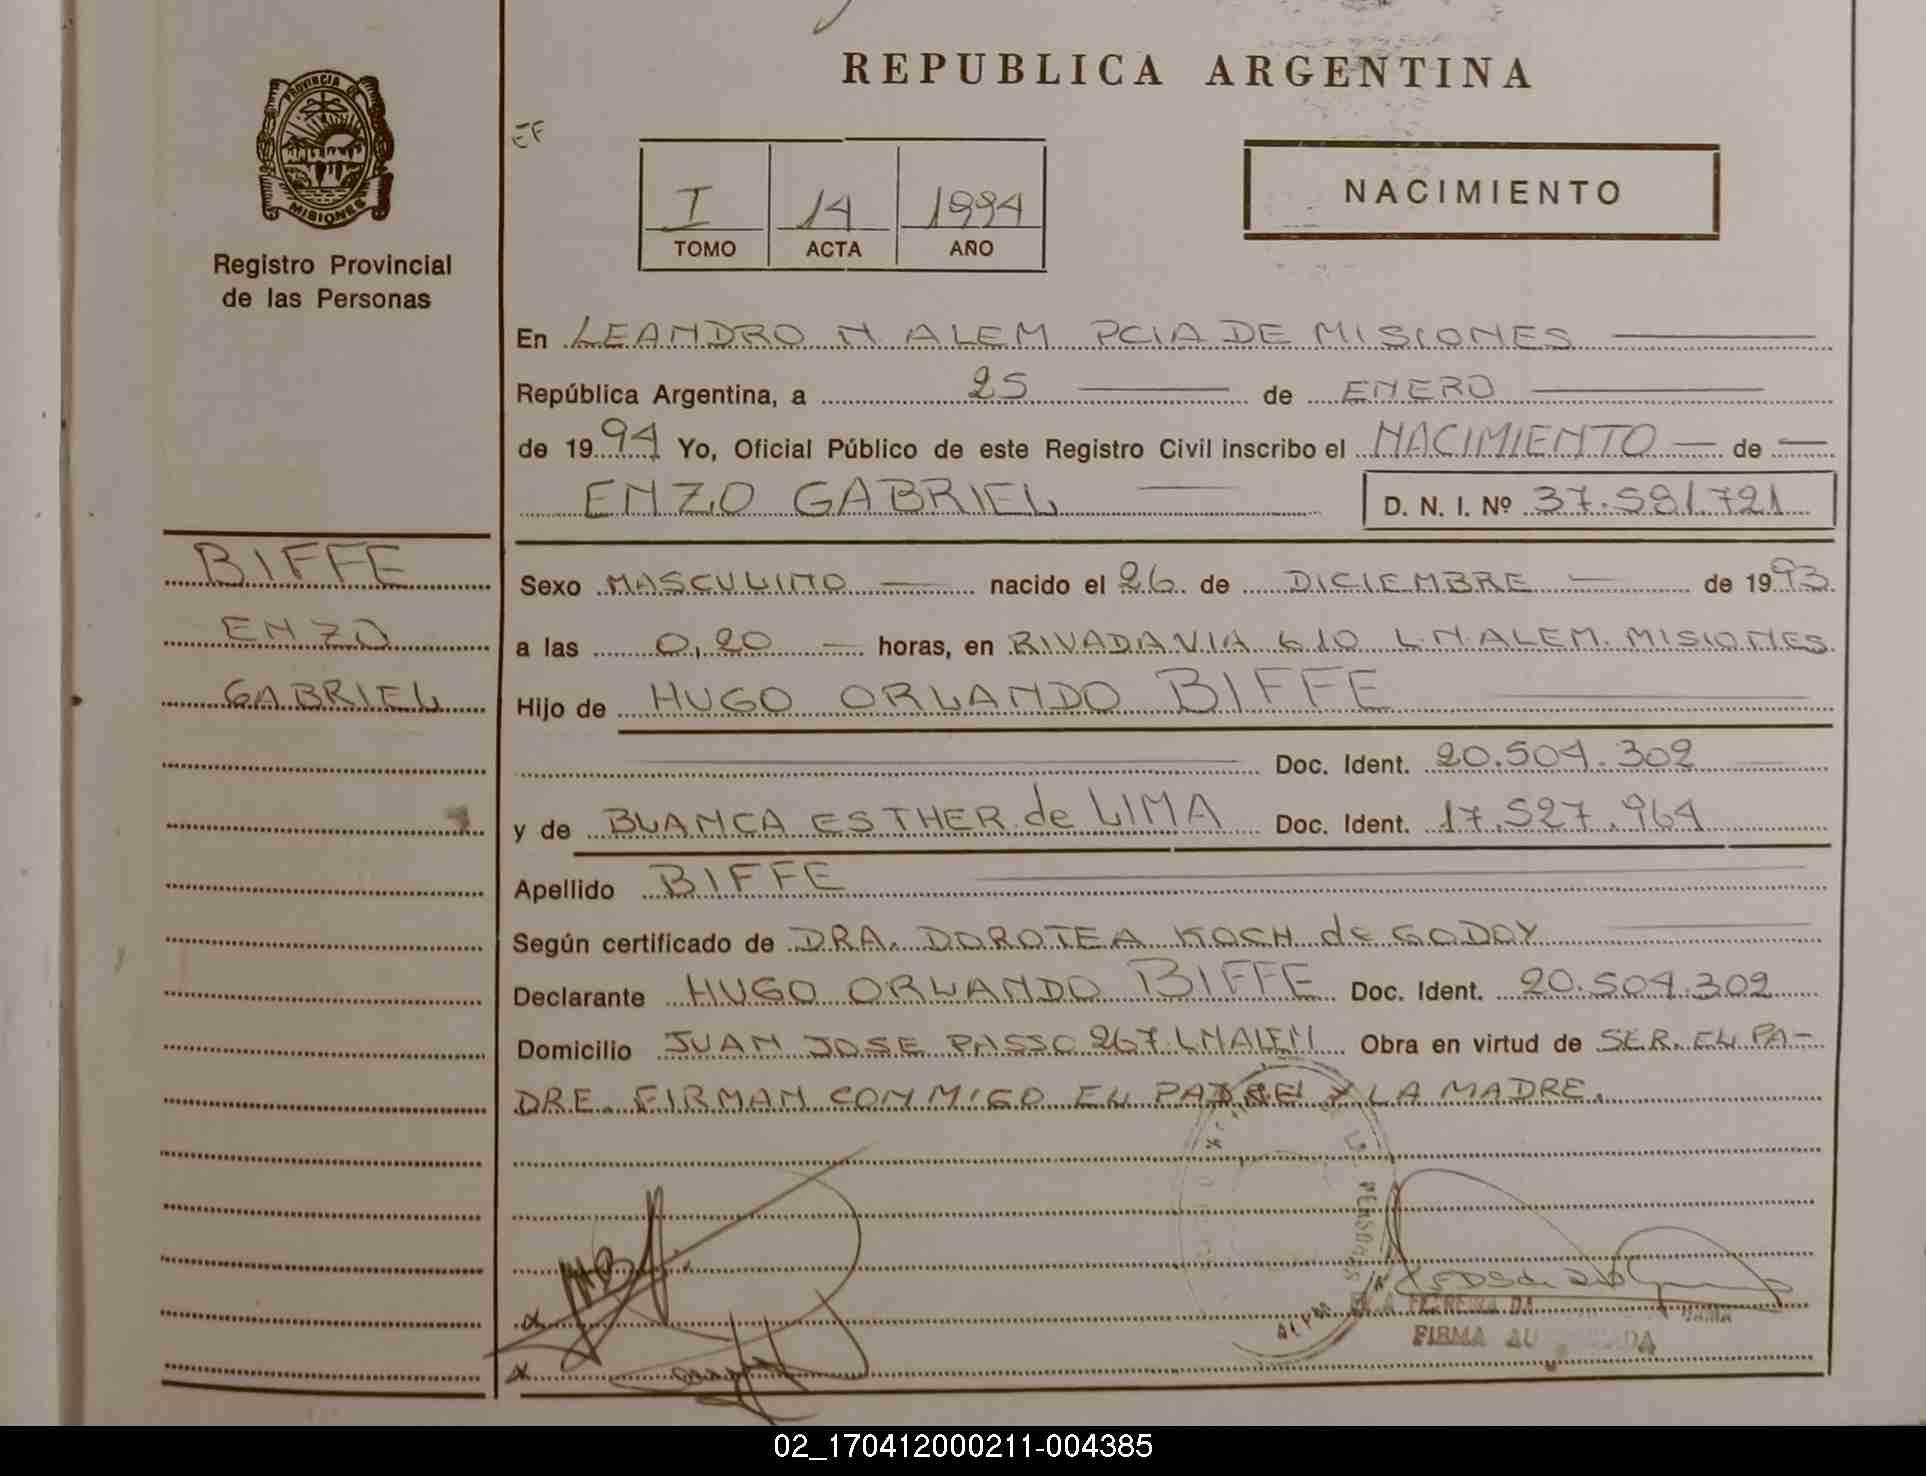 REPUBLICA ARGENTINA
PROVINCIA DE
MISIONES
Registro Provincial
de las Personas
EF
I 14 1994
TOMO ACTA AÑO
NACIMIENTO
En LEANDRO N ALEM PCIA DE MISIONES
República Argentina, a 25 de ENERO
de 1994 Yo, Oficial Público de este Registro Civil inscribo el NACIMIENTO de
ENZO GABRIEL D. N. I. Nº 37.581.721
BIFFE
ENZO
GABRIEL
Sexo MASCULINO nacido el 26 de DICIEMBRE de 1993
a las 0,20 horas, en RIVADAVIA 610 L.N.ALEM. MISIONES
Hijo de HUGO ORLANDO BIFFE
Doc. Ident. 20.504.302
y de BLANCA ESTHER de LIMA Doc. Ident. 17.527.964
Apellido BIFFE
Según certificado de DRA. DOROTEA KOCH de GODOY
Declarante HUGO ORLANDO BIFFE Doc. Ident. 20.504.302
Domicilio JUAN JOSE PASSO 267 LNALEM Obra en virtud de SER EL PA-
DRE. FIRMAN CONMIGO EL PADRE Y LA MADRE.
x
x
FIRMA
02_170412000211-004385